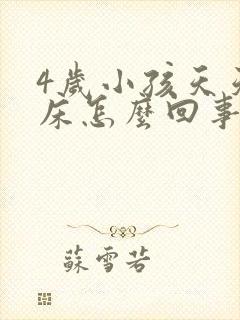 4歲小孩天天
床怎麼回事
蘇雪若